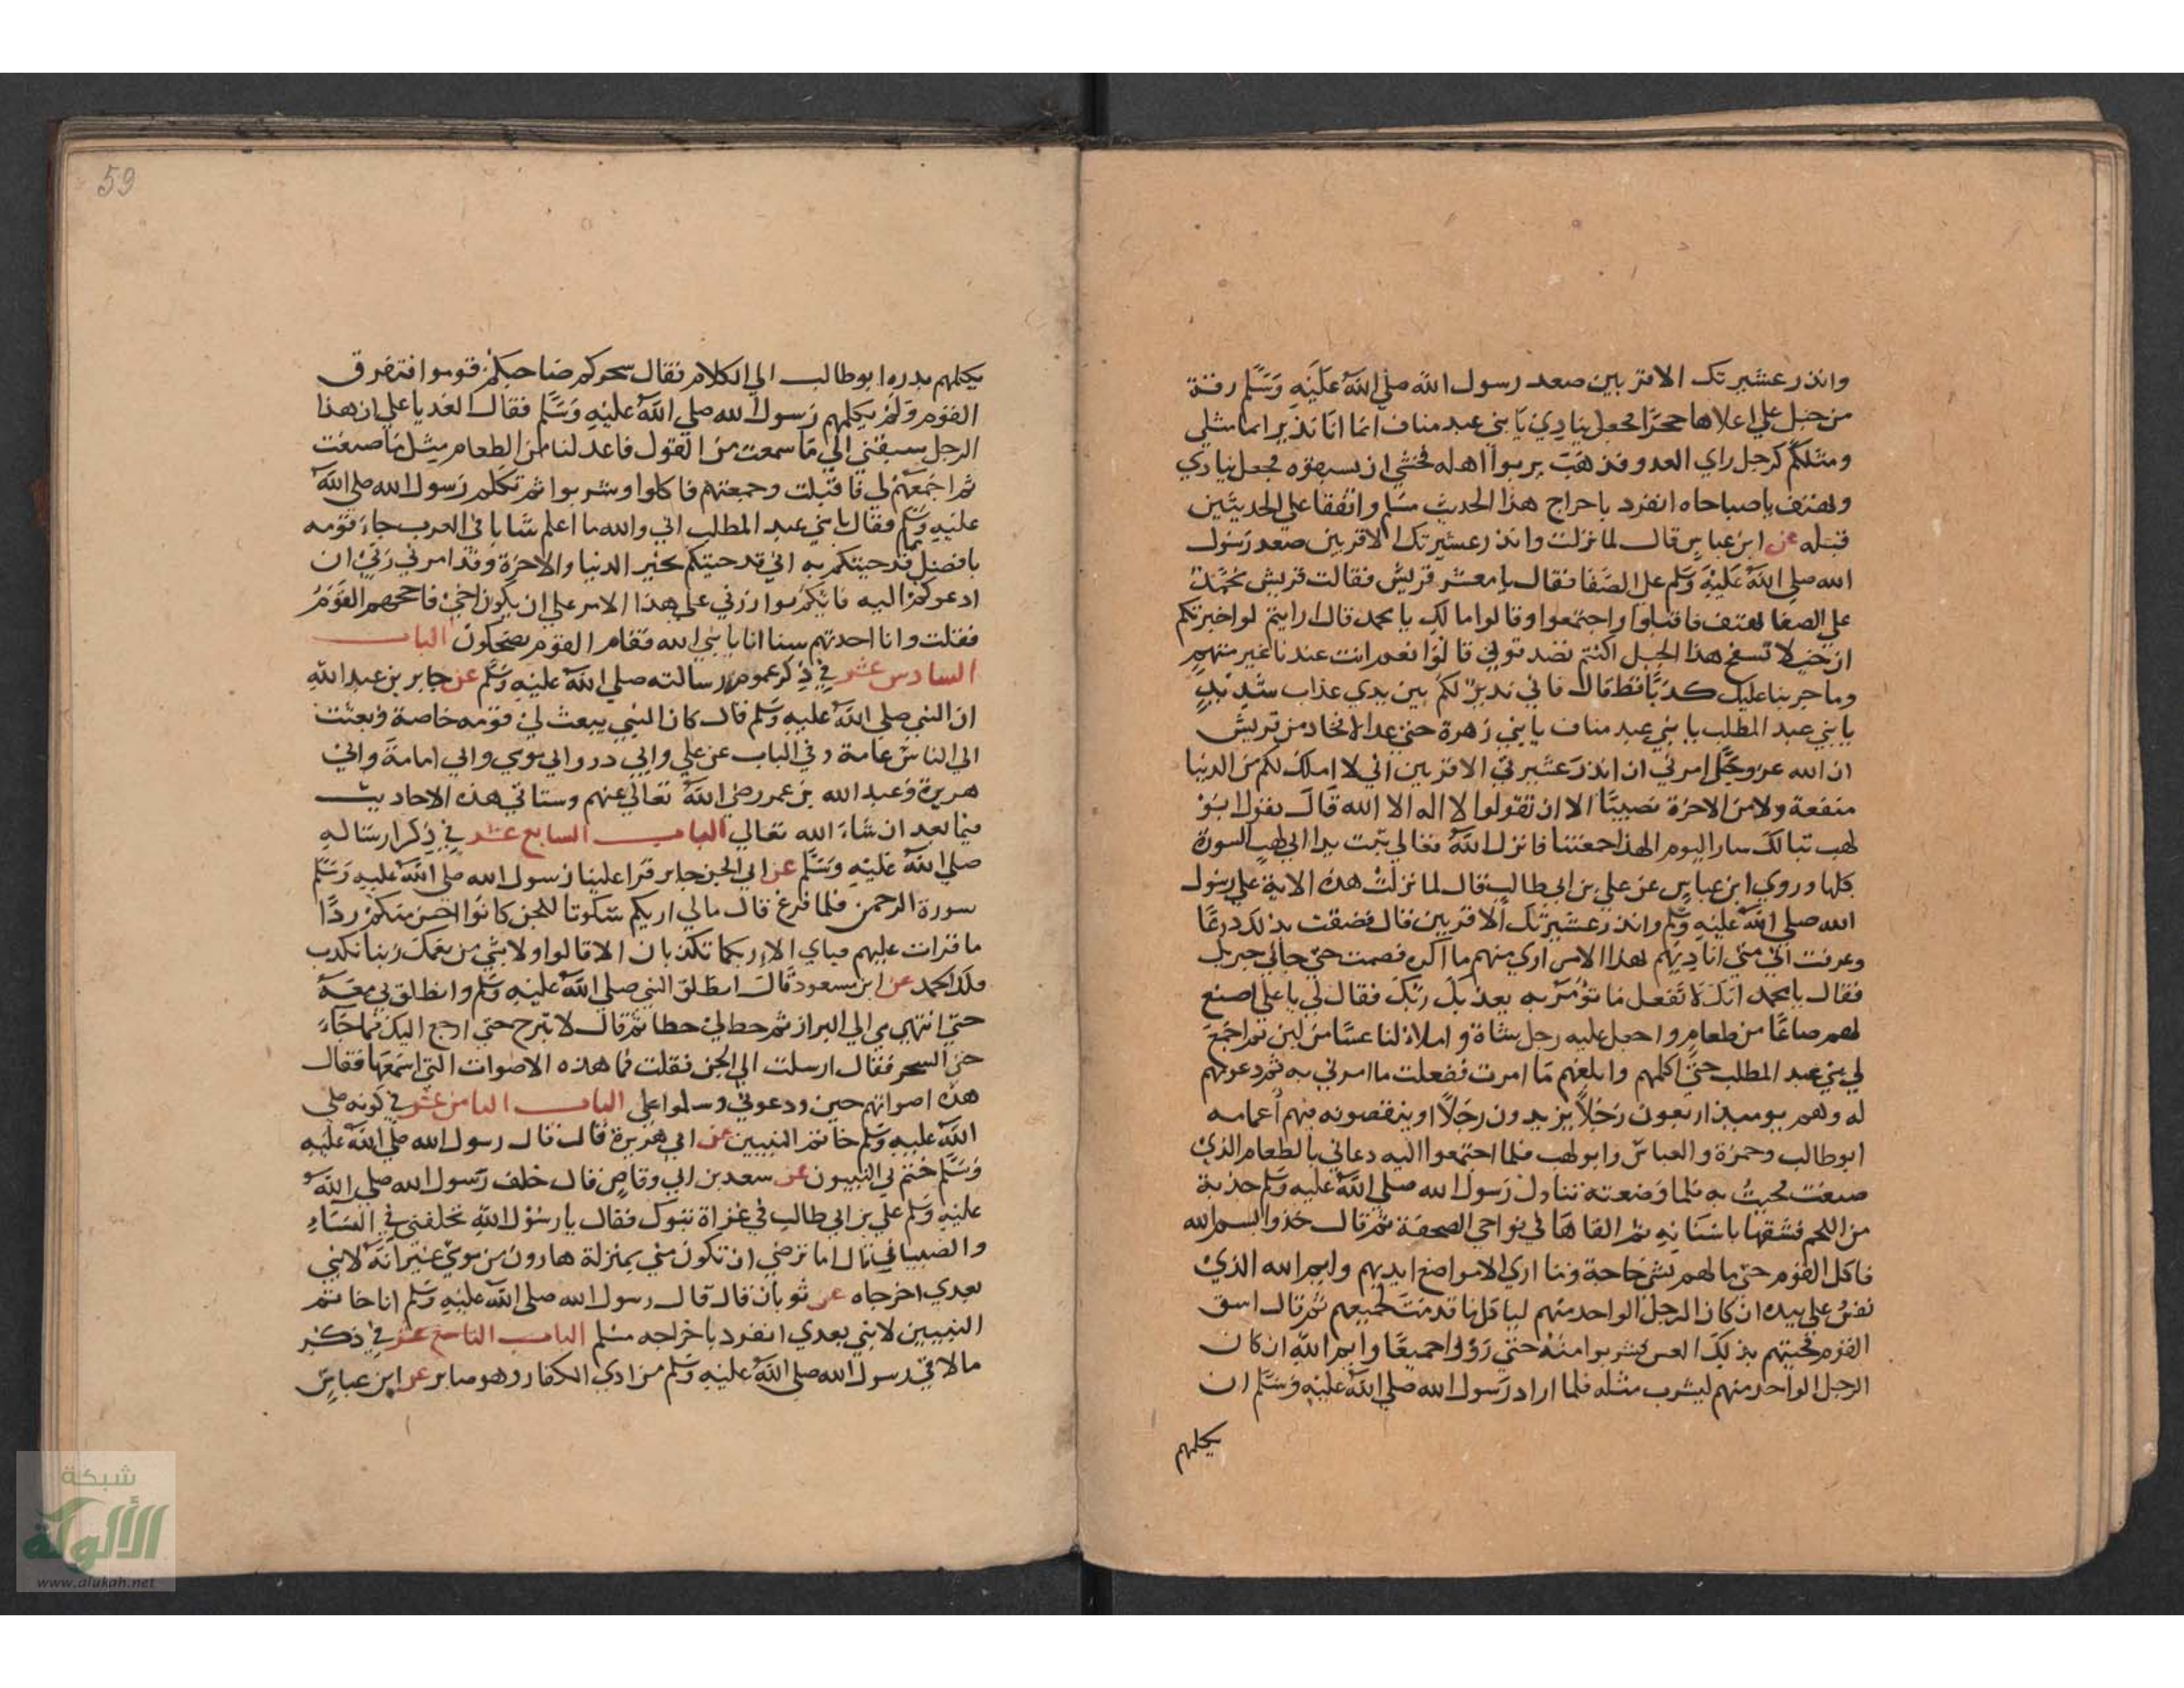 وانذر عشيرتك الاقربين صعد رسول الله صلي الله عليه وسلم رقمة
من جبل علي اعلاها حجرا فجعل ينادي يا بني عبد مناف انما انا نذير انما مثلي
ومثلكم كرجل راي العدو فذهب يربوا اهله فخشي ان يسبقوه فجعل ينادي
ويهتف يا صباحاه انفرد باخراج هذا الحديث مسلم واتفقا علي الحديثين
قبله عن ابن عباس قال لما نزلت وانذر عشيرتك الاقربين صعد رسول
الله صلي الله عليه وسلم علي الصفا فقال يا معشر قريش فقالت قريش محمد
علي الصفا يهتف فاقبلوا واجتمعوا وقالوا مالك يا محمد قال ارايتم لو اخبرتكم
ان خيلا تسفح هذا الجبل اكنتم تصدقوني قالوا نعم انت عندنا غير متهم
وما جربنا عليك كذبا قط قال فاني نذير لكم بين يدي عذاب شديد
يا بني عبد المطلب يا بني عبد مناف يا بني زهرة حتي عد الافخاد من قريش
ان الله عز وجل امرني ان انذر عشيرتي الاقربين اني لا املك لكم من الدنيا
منفعة ولا من الاخرة نصيبا الا ان تقولوا لا اله الا الله قال يقول ابو
لهب تبالك ساير اليوم الهذا جمعتنا فانزل الله تعالي تبت يدا ابي لهب السورة
كلها وروي ابن عباس عن علي بن ابي طالب قال لما نزلت هذه الاية علي رسول
الله صلي الله عليه وسلم وانذر عشيرتك الاقربين قال فضقت بذلك درعا
وعرفت اني متي اناديهم بهذا الامر اري منهم ما اكره فصمت حتي جائي جبريل
فقال يا محمد انك لا تفعل ما تؤمر به يعذبك ربك فقال لي يا علي اصنع
لهم صاعا من طعام واجعل عليه رجل شاة واملاء لنا عسا من لبن ثم اجمع
لي بني عبد المطلب حتي اكلمهم وابلغهم ما امرت ففعلت ما امرني به ثم دعوتهم
له وهم يوميذ اربعون رجلا يزيدون رجلا او ينقصونه فيهم اعمامه
ابو طالب وحمزة والعباس وابو لهب فلما اجتمعوا اليه دعاني بالطعام الذي
صنعت فجيت به فلما وضعته تناول رسول الله صلي الله عليه وسلم حذية
من اللحم فشقها باسنانه ثم القاها في نواحي الصحفة ثم قال خذوا بسم الله
فاكل القوم حتي ما لهم بشي حاجة وما اري الا مواضع ايديهم وايم الله الذي
نفس علي بيده ان كان الرجل الواحد منهم لياكل ما قدمت لجميعهم ثم قال اسق
القوم فجيتهم بذلك العس فشربوا منه حتي رؤوا جميعا وايم الله ان كان
الرجل الواحد منهم ليشرب مثله فلما اراد رسول الله صلي الله عليه وسلم ان
يكلمهم
59
يكلمهم بدره ابو طالب الي الكلام فقال سحركم صاحبكم قوموا فتفرق
القوم ولم يكلمهم رسول الله صلي الله عليه وسلم فقال الغد يا علي ان هذا
الرجل سبقني الي ما سمعت من القول فاعد لنا من الطعام مثل ما صنعت
ثم اجمعهم لي فاقبلت وجمعتهم فاكلوا وشربوا ثم تكلم رسول الله صلي الله
عليه وسلم فقال يا بني عبد المطلب اني والله ما اعلم شابا في العرب جاء قومه
بافضل قد جيتكم به اني قد جيتكم بخير الدنيا والاخرة وقد امرني ربي ان
ادعوكم اليه فايكم يوازرني علي هذا الامر علي ان يكون اخي فاحجم القوم
فقلت وانا احدثهم سنا انا يا نبي الله فقام القوم يضحكون الباب
السادس عشر في ذكر عموم رسالته صلي الله عليه وسلم عن جابر بن عبد الله
ان النبي صلي الله عليه وسلم قال كان النبي يبعث لي قومه خاصة وبعثت
الي الناس عامة وفي الباب عن علي وابي ذر وابي موسي وابي امامة وابي
هريرة وعبد الله بن عمر رضي الله تعالي عنهم وستاتي هذه الاحاديث
فيما بعد ان شاء الله تعالي الباب السابع عشر في ذكر ارساله
صلي الله عليه وسلم عن الي الجن جابر قرا علينا رسول الله صلي الله عليه وسلم
سورة الرحمن فلما فرغ قال مالي اريكم سكوتا للجن كانوا احسن منكم ردا
ما قرات عليهم فباي الاء ربكما تكذبان الا قالوا ولا بشي من نعمك ربنا نكذب
فلك الحمد عن ابن مسعود قال انطلق النبي صلي الله عليه وسلم وانطلق بي معه
حتي انتهي بي الي البراز ثم خط لي خطا ثم قال لا تبرح حتي ارجع اليك فما جاء
حتي السحر فقال ارسلت الي الجن فقلت فما هذه الاصوات التي اسمعها فقال
هذه اصواتهم حين ودعوني وسلموا علي الباب الثامن عشر في كونه صلي
الله عليه وسلم خاتم النبيين عن ابي هريرة قال قال رسول الله صلي الله عليه
وسلم ختم لي النبيون عن سعد بن ابي وقاص قال خلف رسول الله صلي الله
عليه وسلم علي بن ابي طالب في غزاة تبوك فقال يا رسول الله تخلفني في النساء
والصبيان قال اما ترضي ان تكون مني بمنزلة هارون من موسي غير انه لا نبي
بعدي اخرجاه عن ثوبان قال قال رسول الله صلي الله عليه وسلم انا خاتم
النبيين لا نبي بعدي انفرد باخراجه مسلم الباب التاسع عشر في ذكر
ما لاقي رسول الله صلي الله عليه وسلم من اذي الكفار وهو صابر عن ابن عباس
شبكة
الألوكة
www.alukah.net